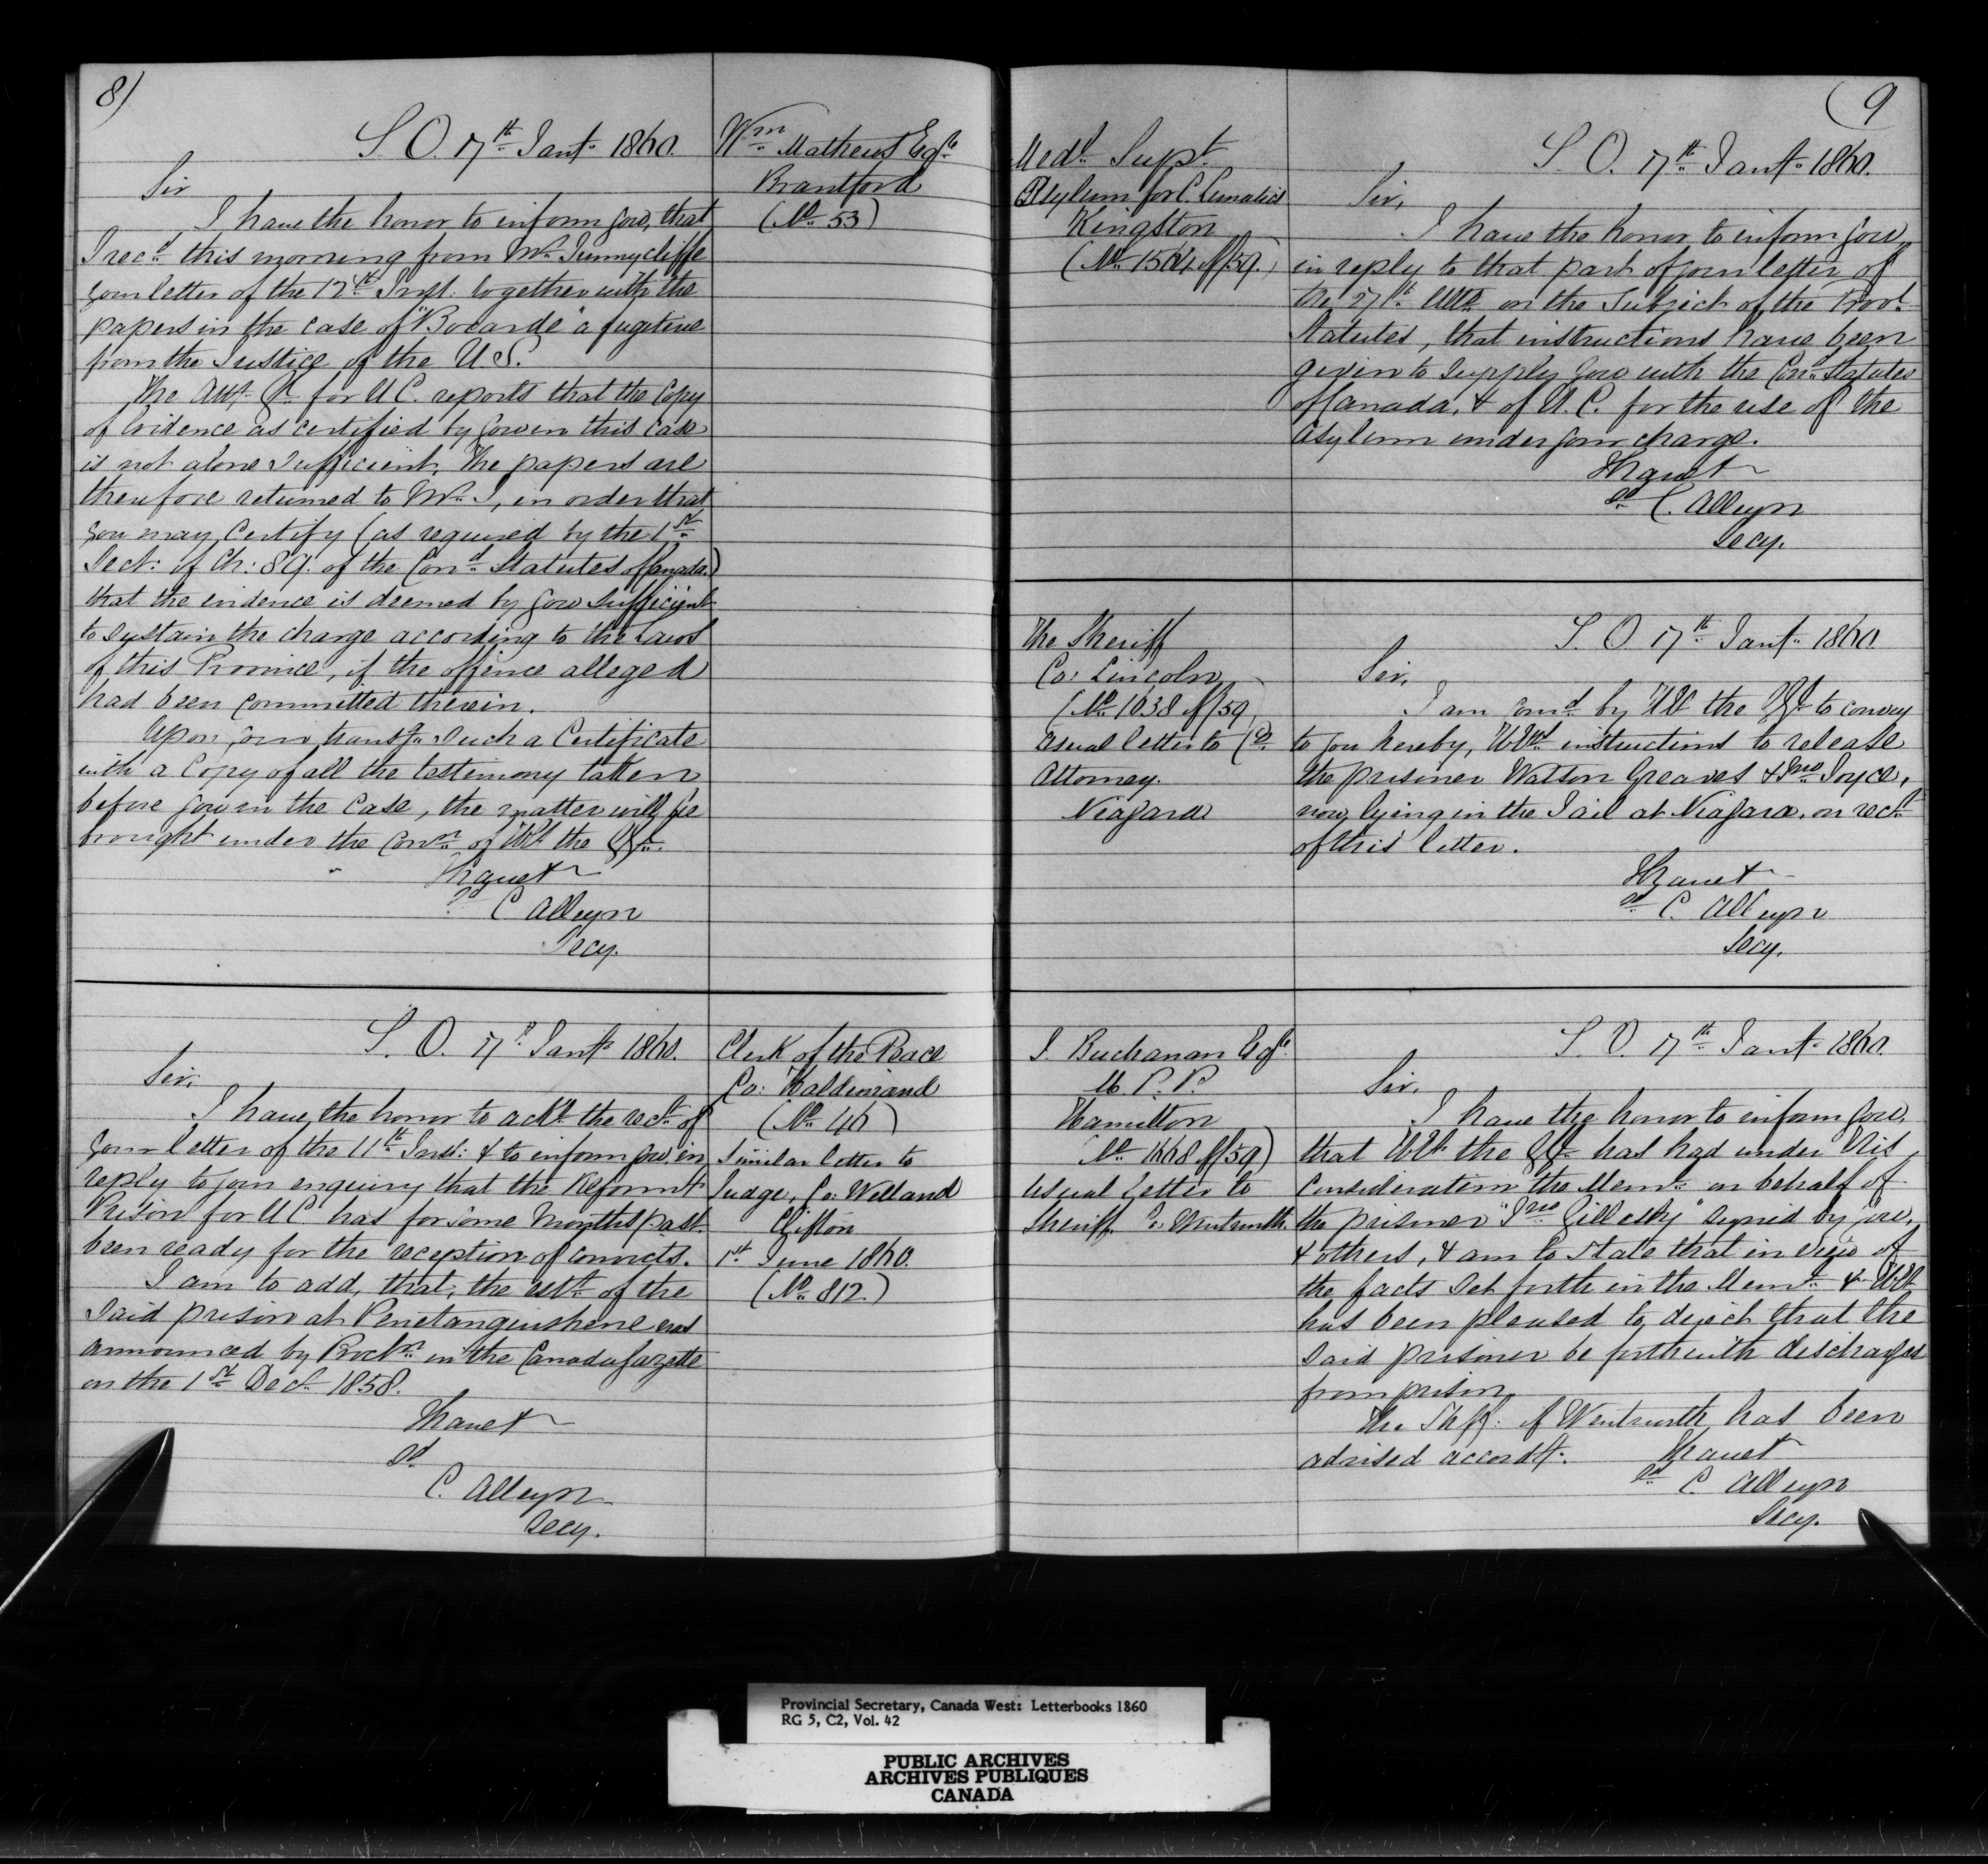 8)
S. O. 17th Jany. 1860.
Wm. Mathews Esqe.
Brantford
(No. 53)
Sir
I have the honor to inform you, that
I recd. this morning from Mr. Sunnycliffe
your letter of the 12th Inst. together with the
papers in the case of "Bocarde" a fugitive
from the Justice of the U.S.
The Atty. Gl. for U C. reports that the Copy
of Evidence as certified by you in this case
is not alone sufficient. The papers are
therefore returned to Mr. S, in order that
you may Certify (as required by the 1st
Sect: of Ch: 89. of the Cond. Statutes of Canada.)
that the evidence is deemed by you sufficient
to sustain the charge according to the Laws
of this Province, if the offence alleged
had been committed therein.
Upon your transg. such a Certificate
with a Copy of all the testimony taken
before you in the Case, the matter will be
brought under the Conn. of HE the GG.
I have &
sd. C Alleyn
Secy.
S. O. 17th Jany. 1860.
Clerk of the Peace
Co: Haldimand
(No. 46)
Similar letter to
Judge, Co: Welland
Clifton
1st June 1860.
(No. 812.)
Sir,
I have the honor to ackn. the rect. of
your letter of the 11th Inst: & to inform you in
reply to your enquiry that the Reformt.
Prison for UC has for some Months past
been ready for the reception of convicts.
I am to add, that, the estt. of the
said prison at Penetanguishene was
announced by Procln. in the Canada Gazette
on the 1st Decr. 1858.
I have &
sd
C. Alleyn
Secy.
(9
Medl. Supt.
Asylum for C. Lunatics
Kingston
(No. 1564 of /59.)
S. O. 17th Jany. 1860.
Sir,
I have the honor to inform you,
in reply to that part of your letter of
the 27th Ulto. on the subject of the Provl.
Statutes, that instructions have been
given to supply you with the Cond. Statutes
of Canada, & of U. C. for the use of the
Asylum under your charge.
I have &
sd. C. Alleyn
Secy.
The Sheriff
Co: Lincoln
(No. 1638 of /59)
Usual letter to Co.
Attorney.
Niagara
S. O. 17th Jany. 1860
Sir,
I am comd. by HE the GG. to convey
to you hereby, HEs instructions to release
the prisoner Watson Greaves & Jno. Joyce,
now lying in the Jail at Niagara, on rect.
of this letter.
I have &
sd. C. Alleyn
Secy.
I. Buchanan Esqe.
M. P. P.
Hamilton
No. 1668 of /59)
Usual letter to
Sheriff Co. Wentworth
S. O. 17th Jany. 1860.
Sir,
I have the honor to inform you,
that HE the GG. has had under his
consideration the Meml. on behalf of
the prisoner "Jno Gillesby" signed by you,
& others, & am to state that in view of
the facts set forth in the Meml. & HE
has been pleased to direct that the
said prisoner be forthwith discharged
from prison.
The Shff: of Wentworth has been
advised accordy. I have &
sd C Alleyn
Secy.
Provincial Secretary, Canada West: Letterbooks 1860
RG 5, C2, Vol. 42
PUBLIC ARCHIVES
ARCHIVES PUBLIQUES
CANADA